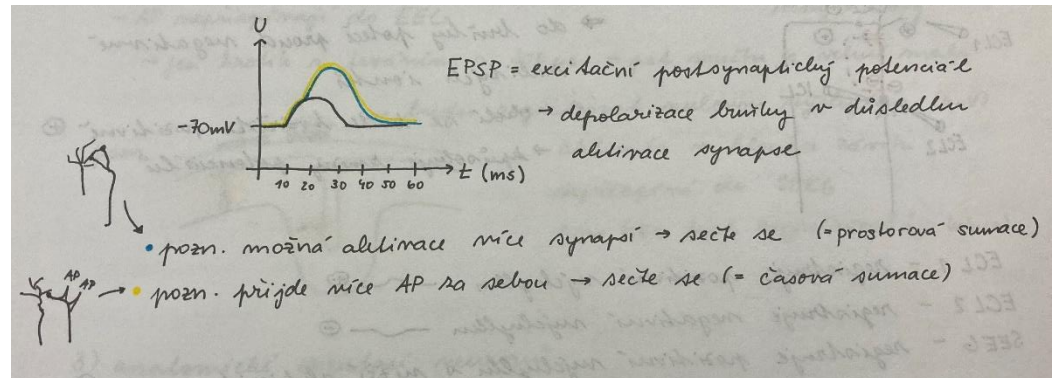 U
EPSP = excitační postsynaptický potenciál
→ depolarizace buňky v důsledku
aktivace synapse
-70mV
10 20 30 40 50 60
t (ms)
• pozn. možná aktivace více synapsí → sečte se (= prostorová sumace)
AP AP
• pozn. přijde více AP za sebou → sečte se (= časová sumace)